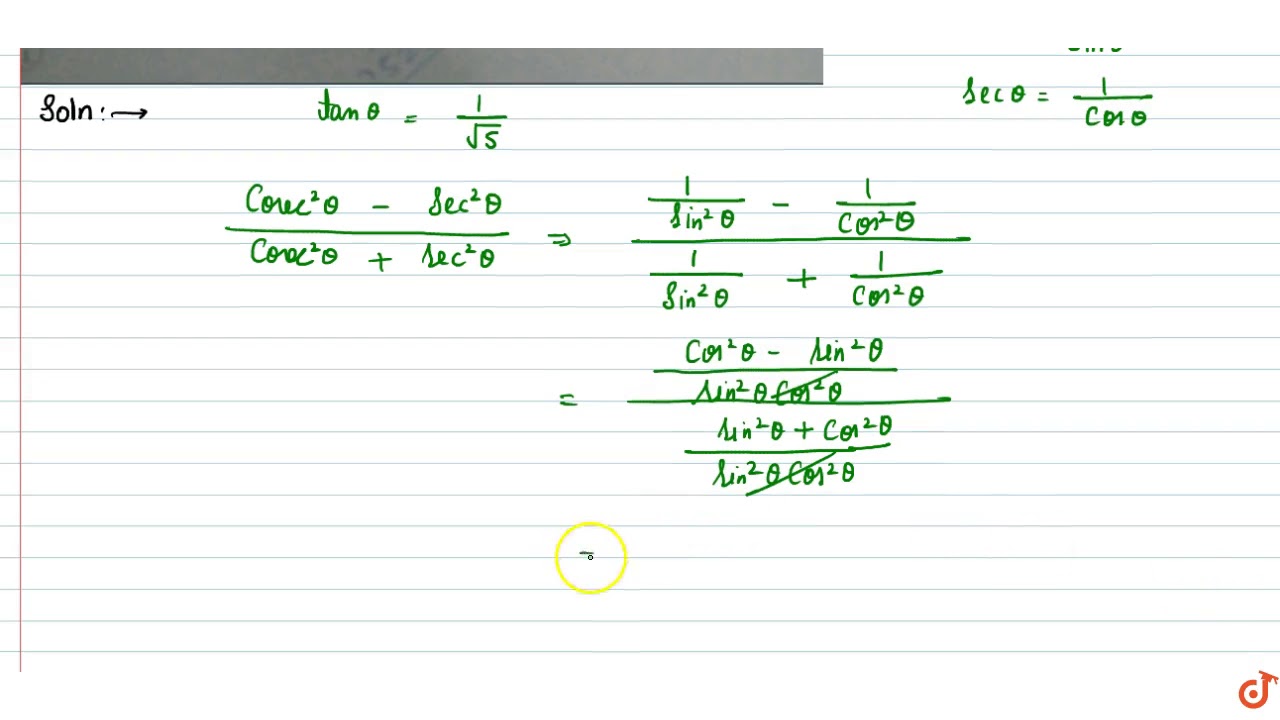 Soln:→ tanθ = 1/√5
secθ = 1/cosθ
(Cosec²θ - sec²θ)/(Cosec²θ + sec²θ) ⇒ (1/sin²θ - 1/cos²θ)/(1/sin²θ + 1/cos²θ)
= ((cos²θ - sin²θ)/(sin²θ cos²θ))/((sin²θ + cos²θ)/(sin²θ cos²θ))
=